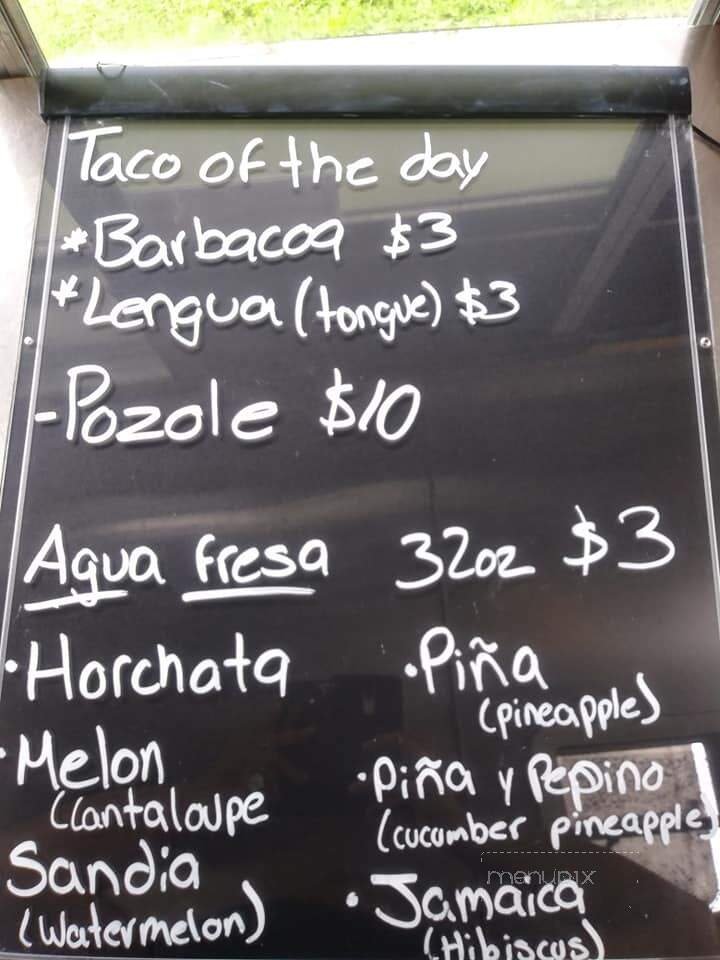 Taco of the day
*Barbacoa $3
*Lengua (tongue) $3
-Pozole $10
Agua fresa 32oz $3
·Horchata
·Piña
(pineapple)
·Melon
(Cantaloupe
·Piña y Pepino
(cucumber pineapple)
Sandia
(Watermelon)
·Jamaica
(Hibiscus)
menupix